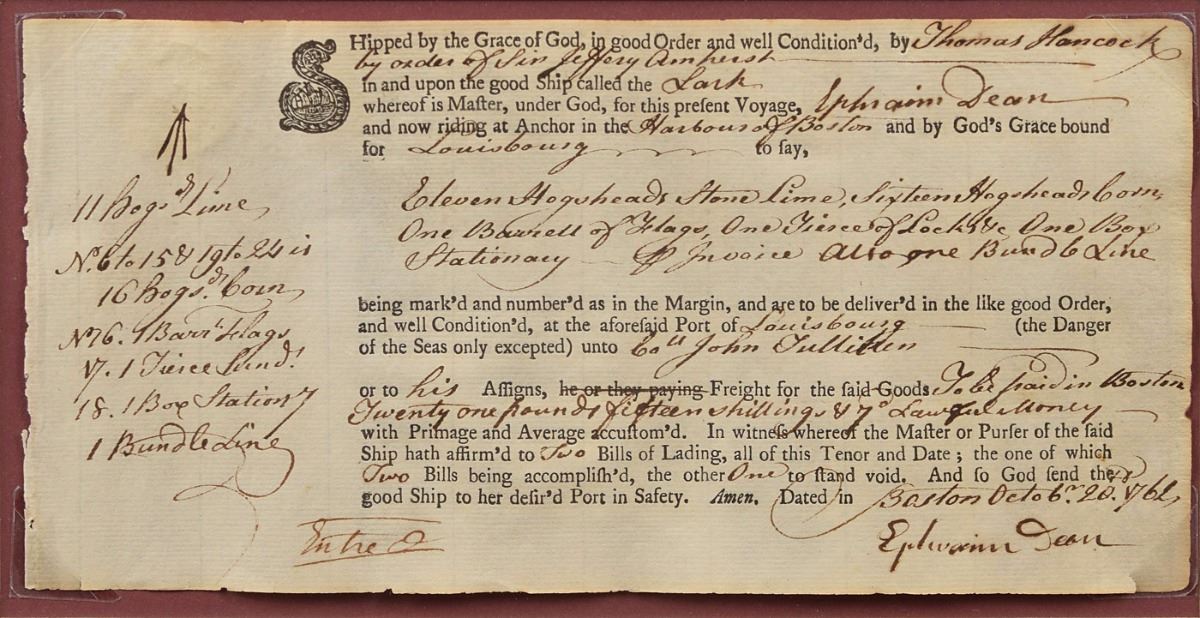 SHipped by the Grace of God, in good Order and well Condition'd, by Thomas Hancock
by order of Sir Jeffery Amherst
in and upon the good Ship called the Lark
whereof is Master, under God, for this present Voyage, Ephraim Dean
and now riding at Anchor in the Harbour of Boston and by God's Grace bound
for Louisbourg to say,
Eleven Hogsheads Stone Lime, Sixteen Hogsheads Corn,
One Barrell of Flags, One Tierce of Locks &c One Box
Stationary Invoice Also one Bundle Line
11 hogsds Lime
No. 6 to 15 & 19 to 24 is
16 hogsds. Corn
No 26. 1 Barrl Flags
17. 1 Tierce Sund.s
18. 1 Box Stationy
1 Bundle Line
being mark'd and number'd as in the Margin, and are to be deliver'd in the like good Order,
and well Condition'd, at the aforesaid Port of Louisbourg (the Danger
of the Seas only excepted) unto Coll John
or to his Assigns, he or they paying Freight for the said Goods To be paid in Boston
Twenty one pounds fifteen shillings & 7d Lawful Money
with Primage and Average accustom'd. In witness whereof the Master or Purser of the said
Ship hath affirm'd to Two Bills of Lading, all of this Tenor and Date; the one of which
Two Bills being accomplish'd, the other One to stand void. And so God send the
good Ship to her desir'd Port in Safety. Amen. Dated in Boston Octobr. 20.
Ephraim Dean